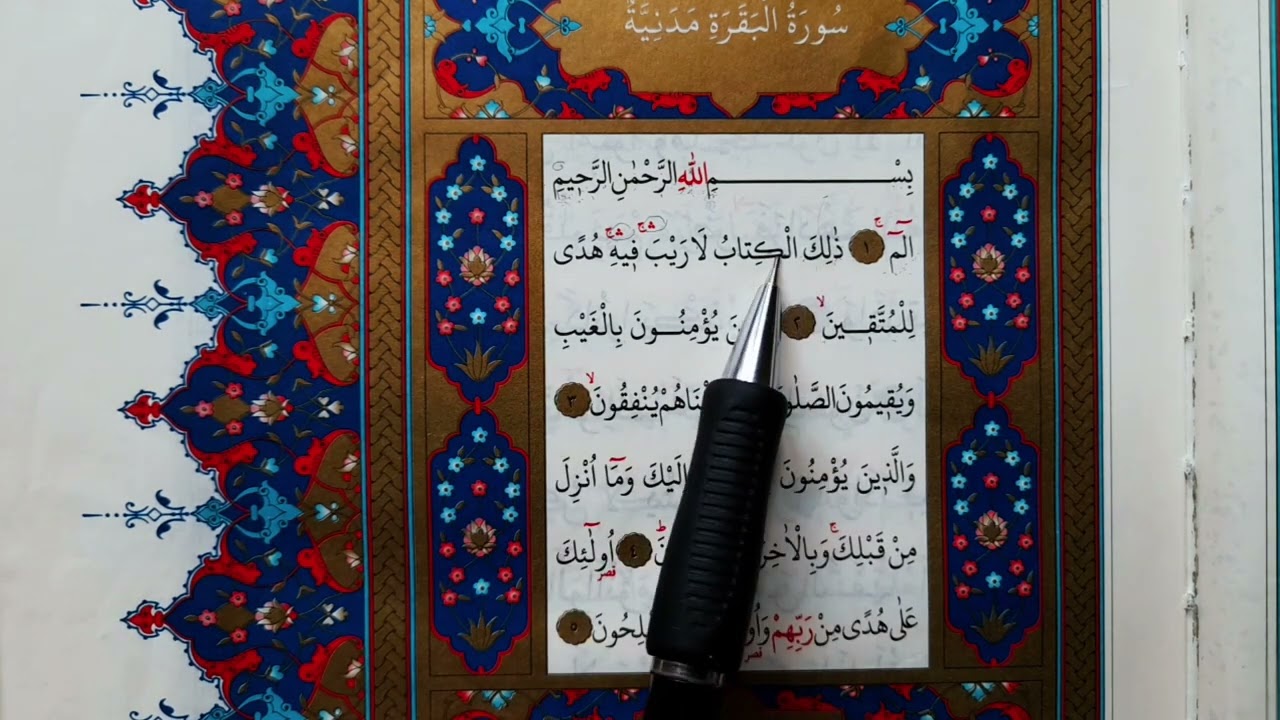 سُورَةُ الْبَقَرَةِ مَدَنِيَّةٌ
بِسْمِ اللّٰهِ الرَّحْمٰنِ الرَّحِيمِ
الٓمٓ ۚ ﴿١﴾ ذٰلِكَ الْكِتَابُ لَا رَيْبَ ۛ فِيهِ ۛ هُدًى
لِلْمُتَّقِينَ ۙ ﴿٢﴾ يُؤْمِنُونَ بِالْغَيْبِ
وَيُقِيمُونَ الصَّلٰو يُنْفِقُونَ ۙ ﴿٣﴾
وَالَّذِينَ يُؤْمِنُونَ اِلَيْكَ وَمَٓا اُنْزِلَ
مِنْ قَبْلِكَ ۚ وَبِالْاٰخِرَ ﴿٤﴾ اُولٰٓئِكَ
عَلٰى هُدًى مِنْ رَبِّهِمْ وَاُو لِحُونَ ﴿٥﴾